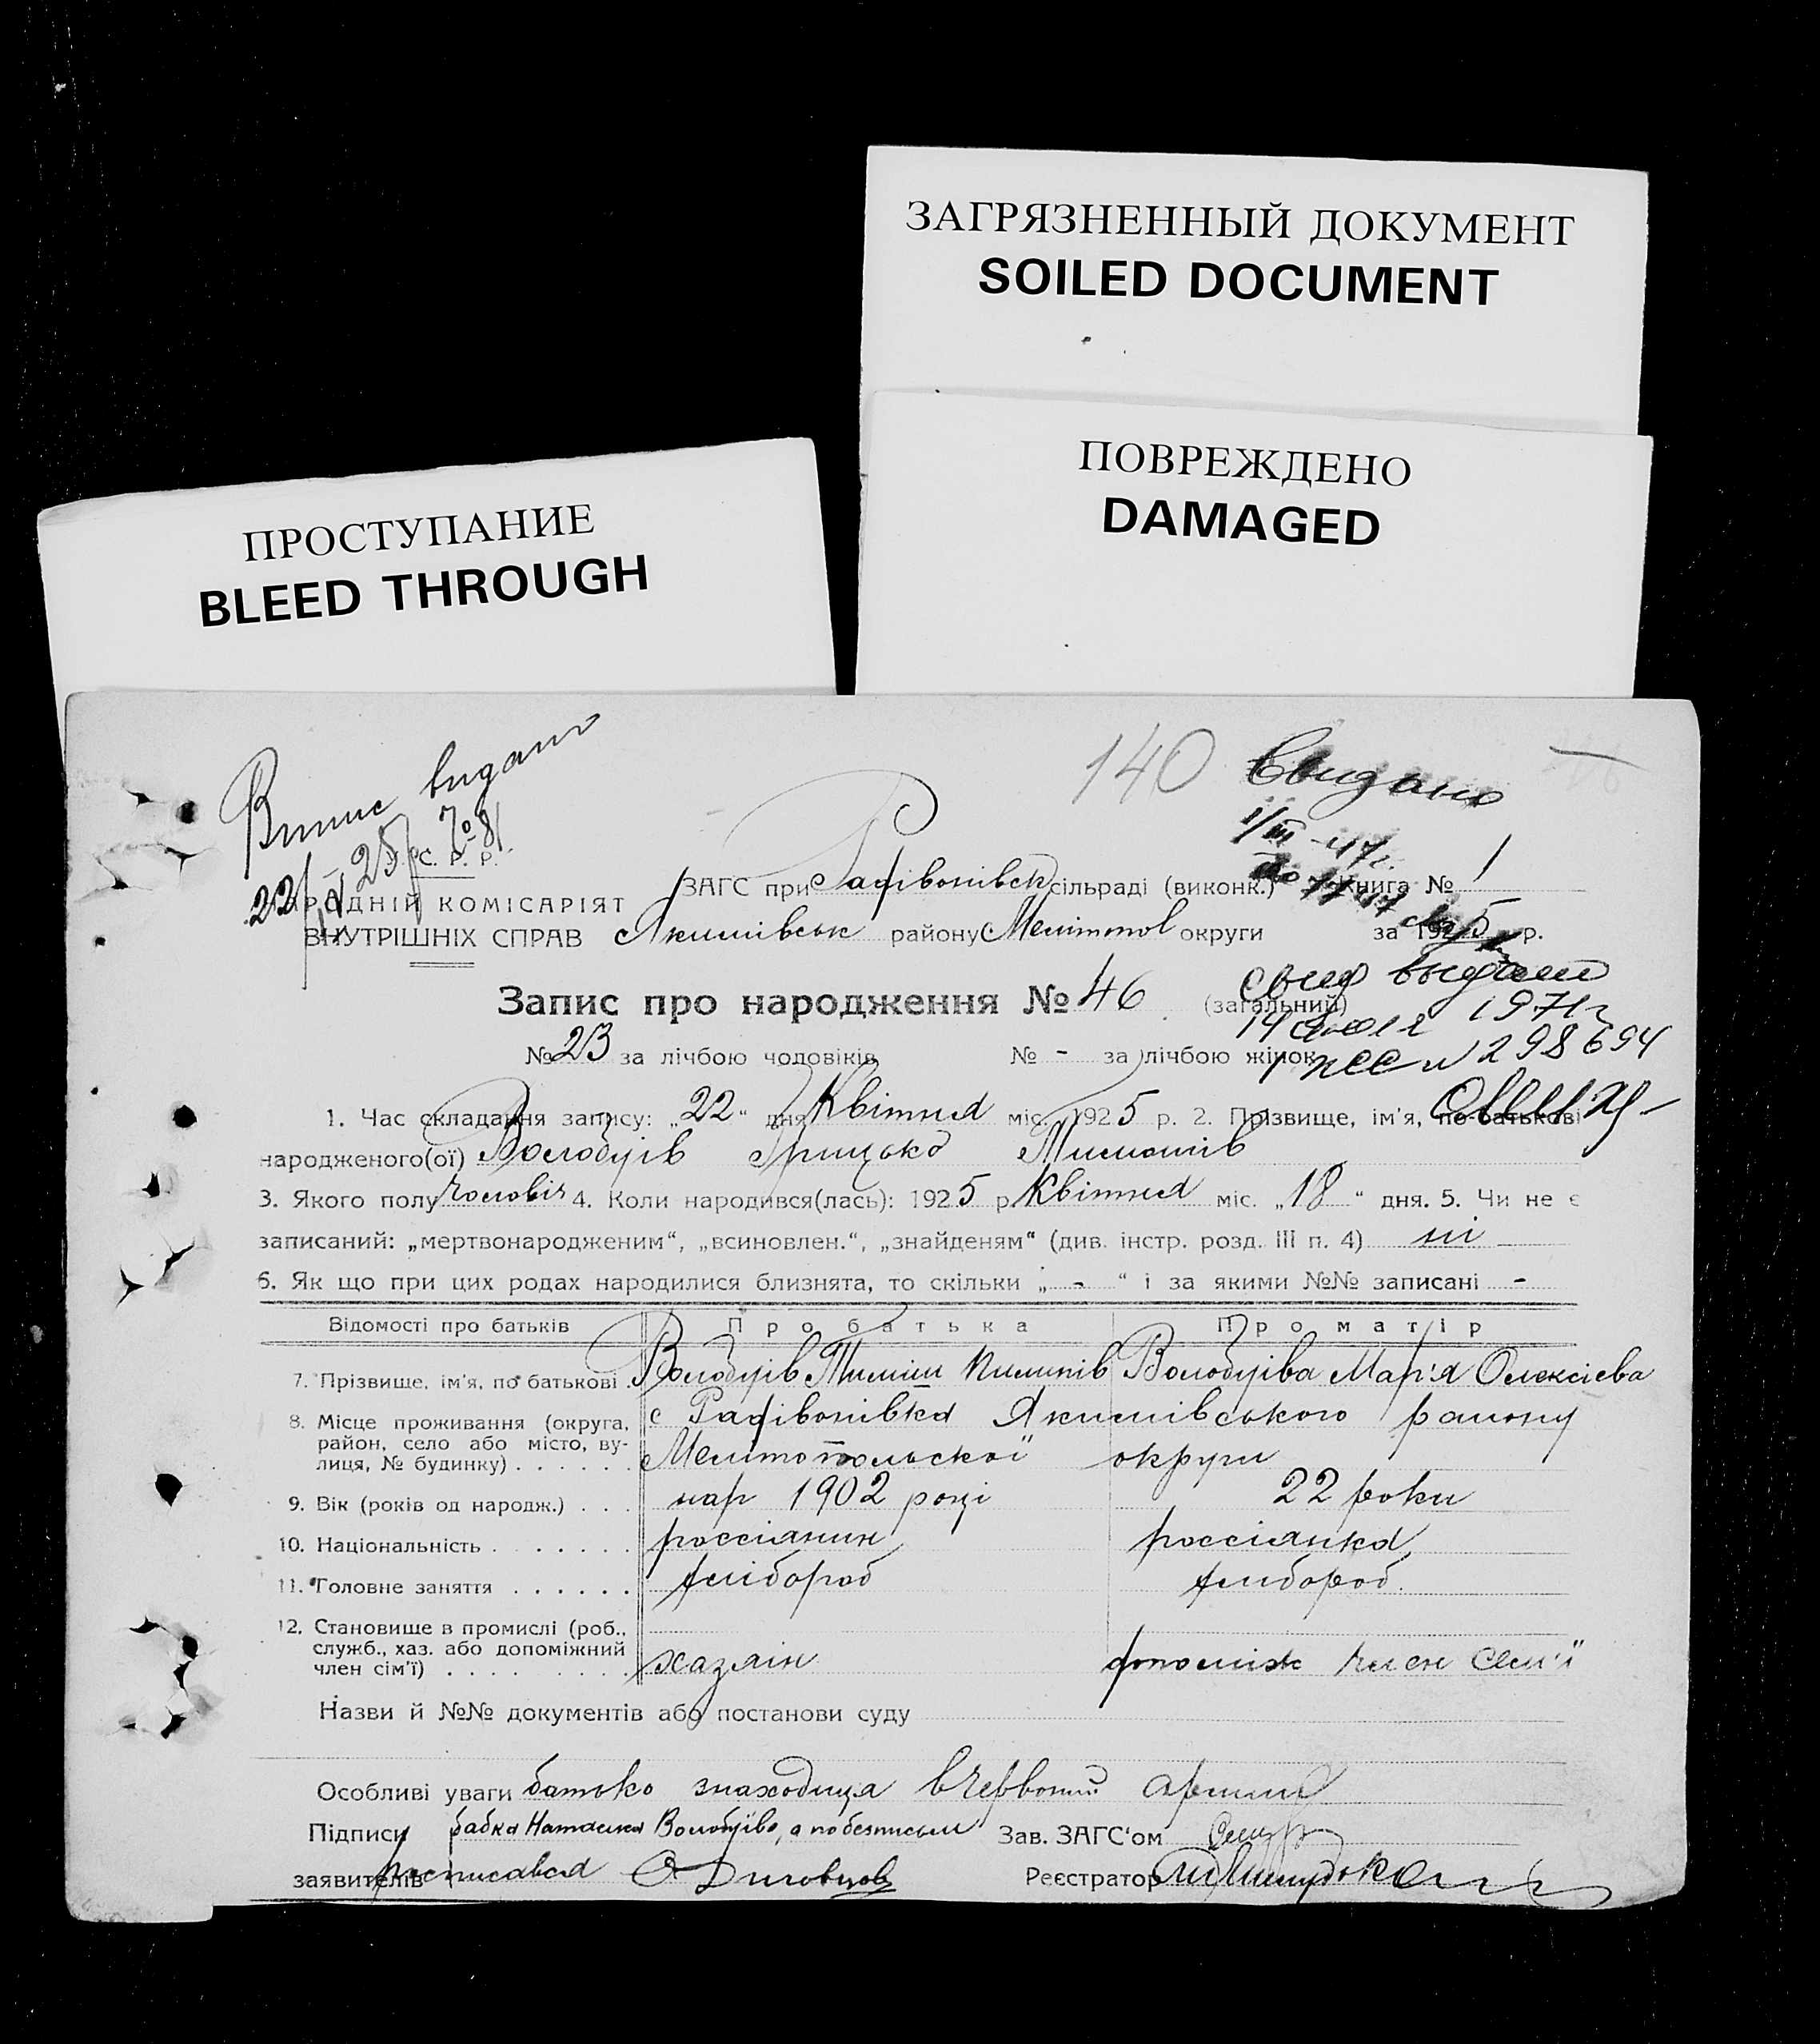 ЗАГРЯЗНЕННЫЙ ДОКУМЕНТ
SOILED DOCUMENT
ПОВРЕЖДЕНО
DAMAGED
ПРОСТУПАНИЕ
BLEED THROUGH
Випис видано
22/IV 25
140 Выдано
1/III-47 г.
С. Р. Р.
ЗАГС при Радівонівськ сільраді (виконк.) Книга № 1
НАРОДНІЙ КОМІСАРІЯТ
ВНУТРІШНІХ СПРАВ Якимівськ району Мелітопол округи за 1925 р.
свид выдан
Запис про народження № 46 (загальний)
14 1971 г
№ 23 за лічбою чоловіків № - за лічбою жінок
№ 298694
1. Час складання запису: „22“ дня Квітня міс. 1925 р. 2. Прізвище, ім'я, по-батькові
народженого(ої) Волобуів Грицько Тимошів
3. Якого полу чоловіч 4. Коли народився(лась): 1925 р. Квітня міс. „18“ дня. 5. Чи не є
записаний: „мертвонародженим“, „всиновлен.“, „знайденям“ (див. інстр. розд. III п. 4) ні
6. Як що при цих родах народилися близнята, то скільки „ - “ і за якими №№ записані -
Відомості про батьків Про батька Про матір
7. Прізвище, ім'я, по батькові . Волобуів Тиміш Пилипів Волобуіва Мар'я Олексіева
8. Місце проживання (округа, район, село або місто, вулиця, № будинку) . . . . . . с Радівонівка Якимівського району
Мелитопольскої округи
9. Вік (років од народж.) . . . нар 1902 році 22 роки
10. Національність . . . . . . . россіянин россіянка
11. Головне заняття . . . . . . хлібороб хлибороб.
12. Становище в промислі (роб.,
служб., хаз. або допоміжний
член сім'ї) . . . . . . . . хазяін допоміж член сем'ї
Назви й №№ документів або постанови суду
Особливі уваги батько знаходиця в червоній армии
Підписи бабка Наталка Волобуїва, а по безписьм Зав. ЗАГС'ом
заявителів росписався Реєстратор